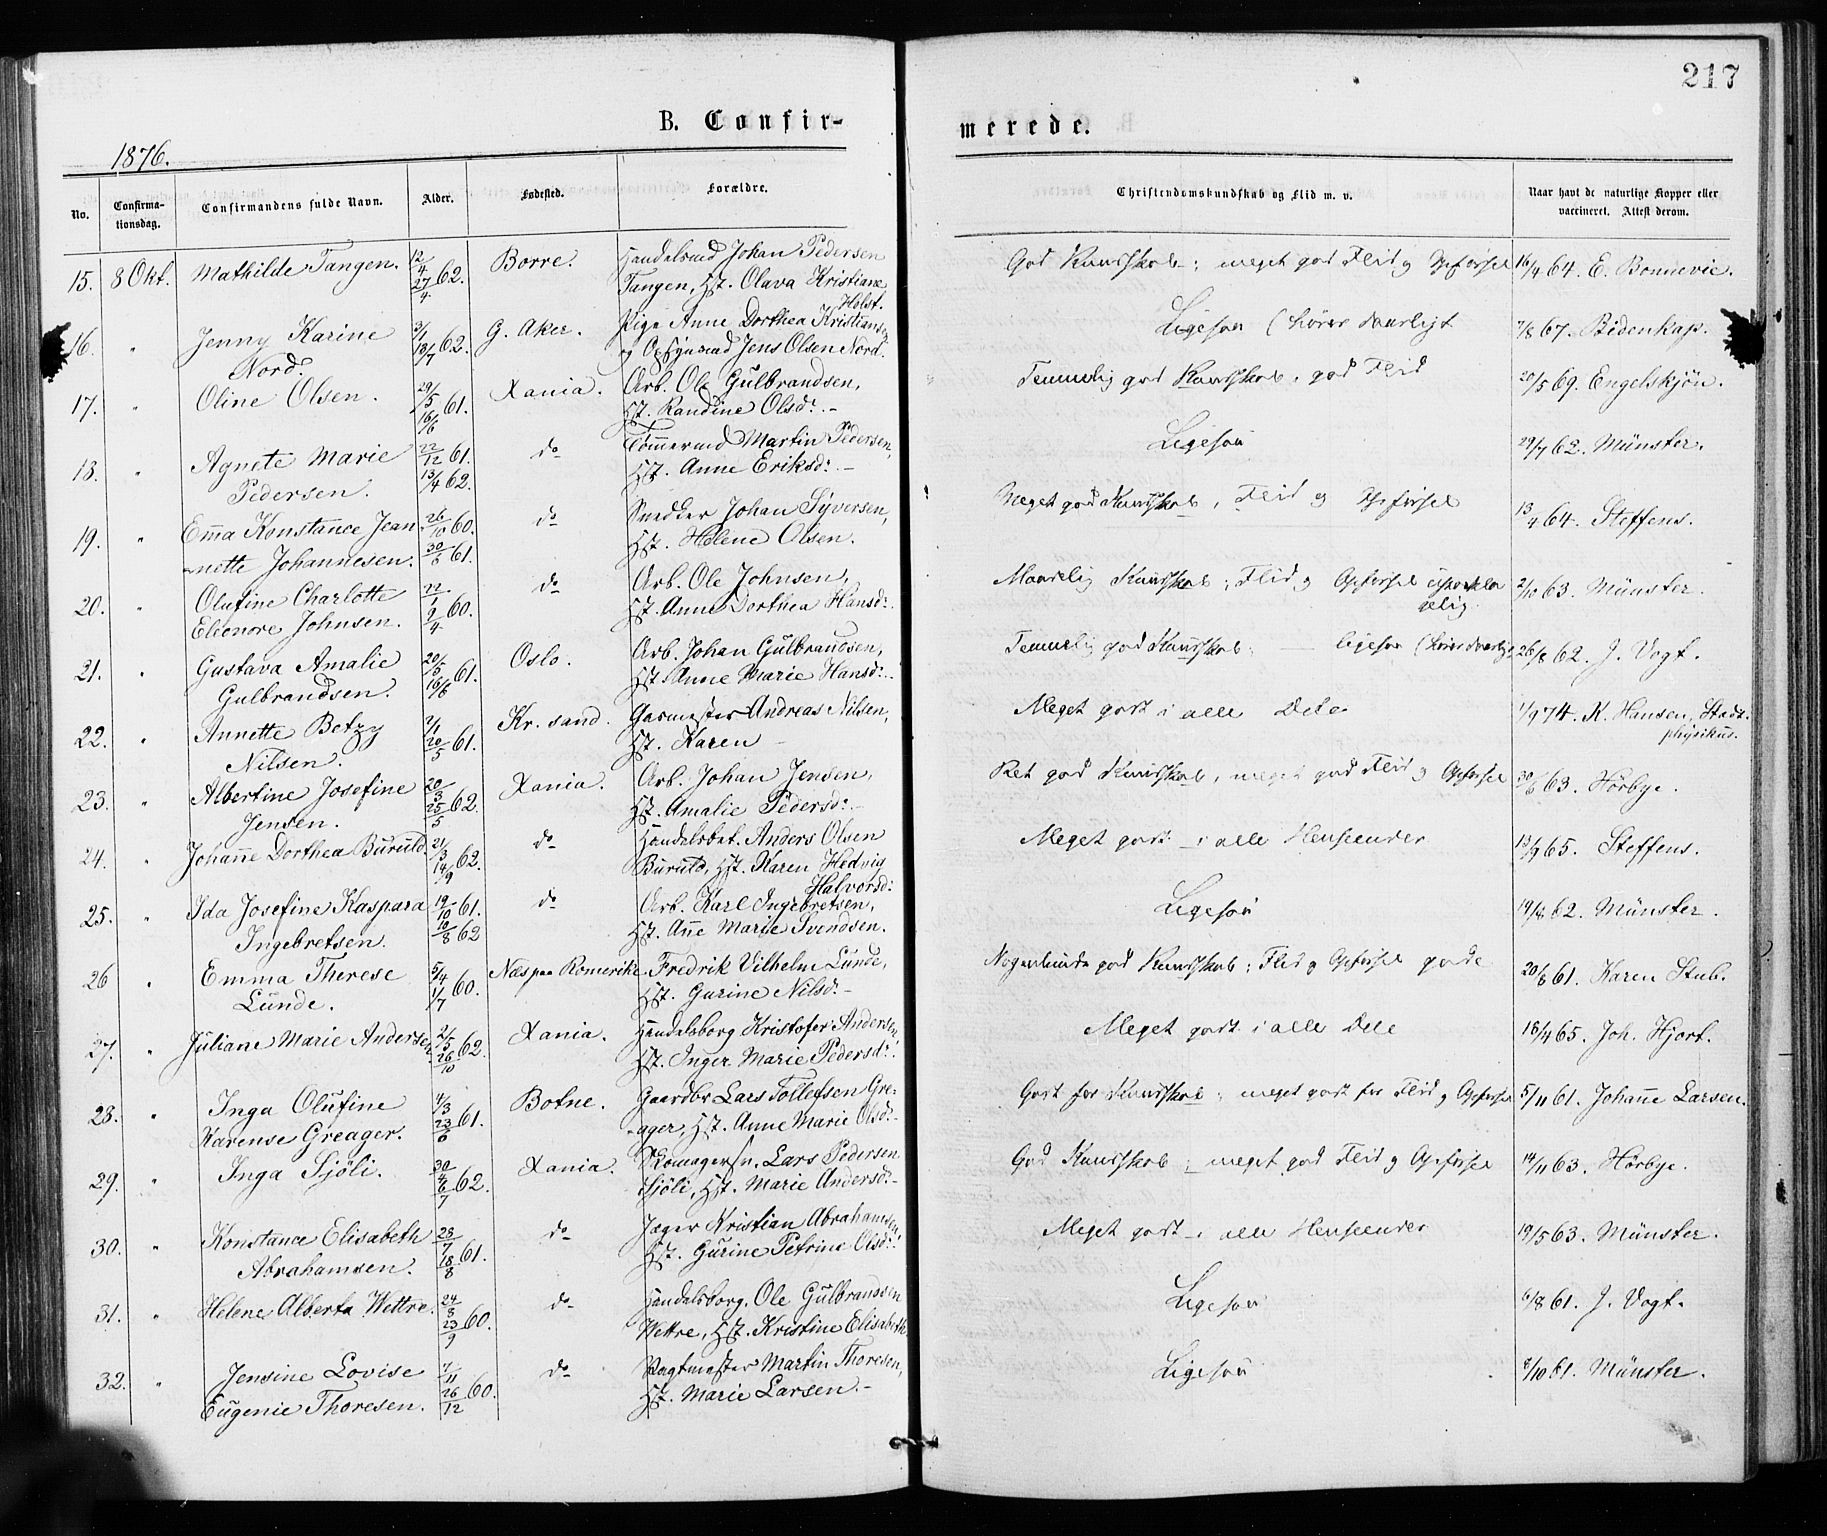 217
B. Confir-
merede.
1876.
No.
Confirma-
tionsdag.
Confirmandens fulde Navn.
Alder.
Fødested.
Forældre.
Christendomskundskab og Flid m. v.
Naar havt de naturlige Kopper eller
vaccineret. Attest derom.
15. 8 Okt. Mathilde Tangen. 12/4 27/4 62. Borre. Handelsmd Johan Pedersen God Kundskab; meget god Flid og Opførsel 16/4 64. E. Bonnevie.
Tangen, Hst. Olava Kristiane
Holst.
16. " Jenny Karine 3/1 13/7 62. G. Aker. Pige Anne Dorthea Kristians Ligesaa (hører daarligt 7/8 67. Bidenkap.
Nord. og Opsynsmd Jens Olsen Nord.
17. " Oline Olsen. 29/5 16/6 61. Xania. Arb. Ole Gulbrandsen, Temmelig god Kundskab, god Flid 20/5 69. Engelskjön.
Hst. Randine Olsd: -
18. " Agnete Marie 22/12 61. 13/4 62. do Tømmermd Martin Pedersen, Ligesaa 29/7 62. Münster.
Pedersen. Hst. Anne Eriksd: -
19. " Emma Konstance Jean 26/10 60. 30/6 61. do Snedker Johan Syversen, Meget god Kundskab, Flid og Opførsel 13/4 64. Steffens.
-nette Johannesen. Hst. Helene Olsen.
20. " Olufine Charlotte 22/1 9/4 60. do Arb. Ole Johnsen, Maadelig Kundskab; Flid og Opførsel upaakla 2/10 63. Münster.
Eleonore Johnsen. Hst. Anne Dorthea Hansd: gelig.
21. " Gustava Amalie 20/5 16/6 61. Oslo. Arb. Johan Gulbrandsen, Temmelig god Kundskab; ligesaa (hører daarlig) 26/8 62. J. Vogt.
Gulbrandsen. Hst. Anne Marie Hansd: -
22. " Annette Betzy 7/1 20/5 61. Kr.sand. Garmester Andreas Nilsen, Meget godt i alle Dele 1/9 74. K. Hansen, Stadt-
Nilsen. Hst. Karen - physikus.
23. " Albertine Josefine 20/3 25/5 62. Xania. Arb. Johan Jensen, Ret god Kundskab, meget god Flid og Opførsel 30/6 63. Hörbye.
Jensen. Hst. Amalie Pedersd: -
24. " Johanne Dorthea Buruld. 21/3 14/9 62. do Handelsbet. Anders Olsen Meget godt i alle Henseender 13/9 65. Steffens.
Buruld, Hst. Karen Hedvig
Halvorsd:
25. " Ida Josefine Kaspara 19/10 61. 10/8 62 do Arb. Karl Ingebretsen, Ligesaa 19/8 62. Münster.
Ingebretsen. Hst. Anne Marie Svendsen.
26 " Emma Therese 5/4 1/7 60. Næs paa Romerike Fredrik Vilhelm Lunde, Nogenlunde god Kundskab; Flid og Opførsel gode 20/8 61. Karen Stub.
Lunde. Hst. Gurine Nilsd: -
27. " Juliane Marie Andersen. 2/5 26/10 62. Xania. Handelsborg Kristofer Andersen, Meget godt i alle Dele 16/4 65. Joh. Hjort.
Hst. Inger Marie Pedersd:
28. " Inga Olufine 4/3 23/6 61. Botne. Gaardbr Lars Tollefsen Gre- Godt for Kundskab; meget godt for Flid og Opførsel 5/11 61. Johanne Larsen.
Karense Greager. -ager, Hst. Anne Marie Olsd: -
29. " Inga Sjöli. 30/4 6/7 62. Xania. Skomagersv. Lars Pedersen God Kundskab; meget god Flid og Opførsel 14/11 63. Hörbye.
Sjöli, Hst. Marie Andersd: -
30. " Konstance Elisabeth 28/7 18/8 61. do Jæger Kristian Abrahamsen, Meget godt i alle Henseender 19/5 63. Münster.
Abrahamsen. Hst. Gurine Petrine Olsd:
31. " Helene Alberta Wettre. 24/8 23/9 60. do Handelsborg. Ole Gulbrandsen Ligesaa 6/8 61. J. Vogt.
Wettre, Hst. Kristine Elisabeth
32. " Jensine Lovise 7/11 26/12 60. do Vagtmester Martin Thoresen, Ligesaa 8/10 61. Münster.
Eugenie Thoresen. Hst. Marie Larsen. -